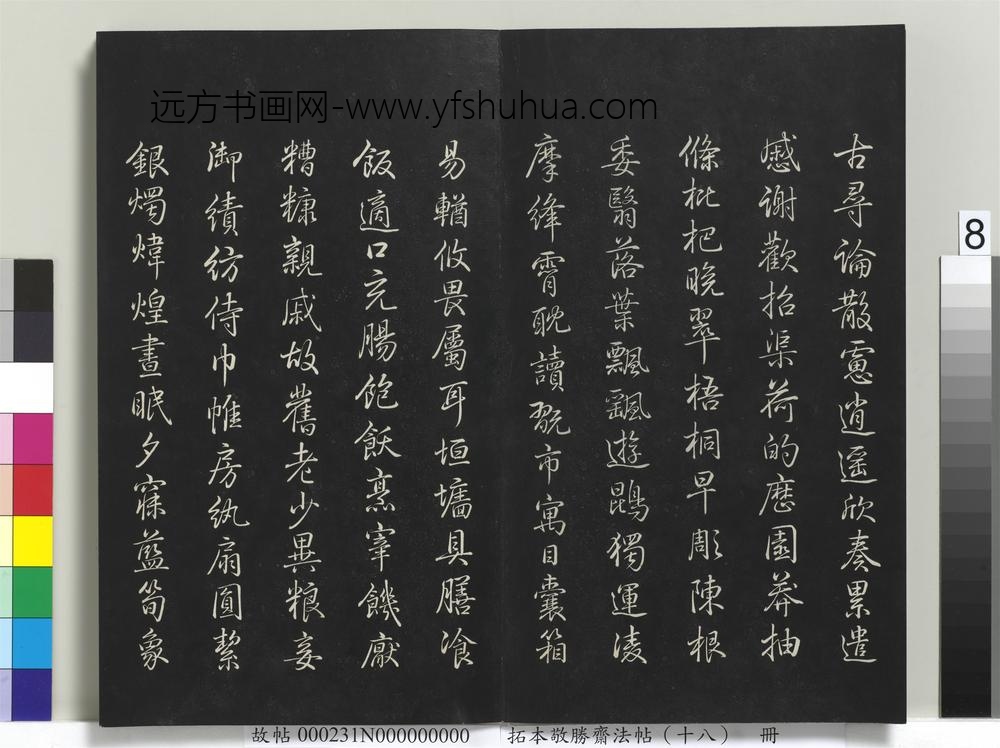 远方书画网-www.yfshuhua.com
古尋論散慮逍遥欣奏累遣
慼謝歡招渠荷的歷園莽抽
條枇杷晚翠梧桐早彫陳根
委翳落葉飄飖遊鵾獨運淩
摩絳霄耽讀翫市寓目囊箱
易輶攸畏屬耳垣墻具膳飡
飯適口充腸飽飫烹宰饑厭
糟糠親戚故舊老少異粮妾
御績紡侍巾帷房紈扇圓絜
銀燭煒煌晝眠夕寐藍筍象
8
故帖 000231N000000000 拓本敬勝齋法帖（十八） 冊